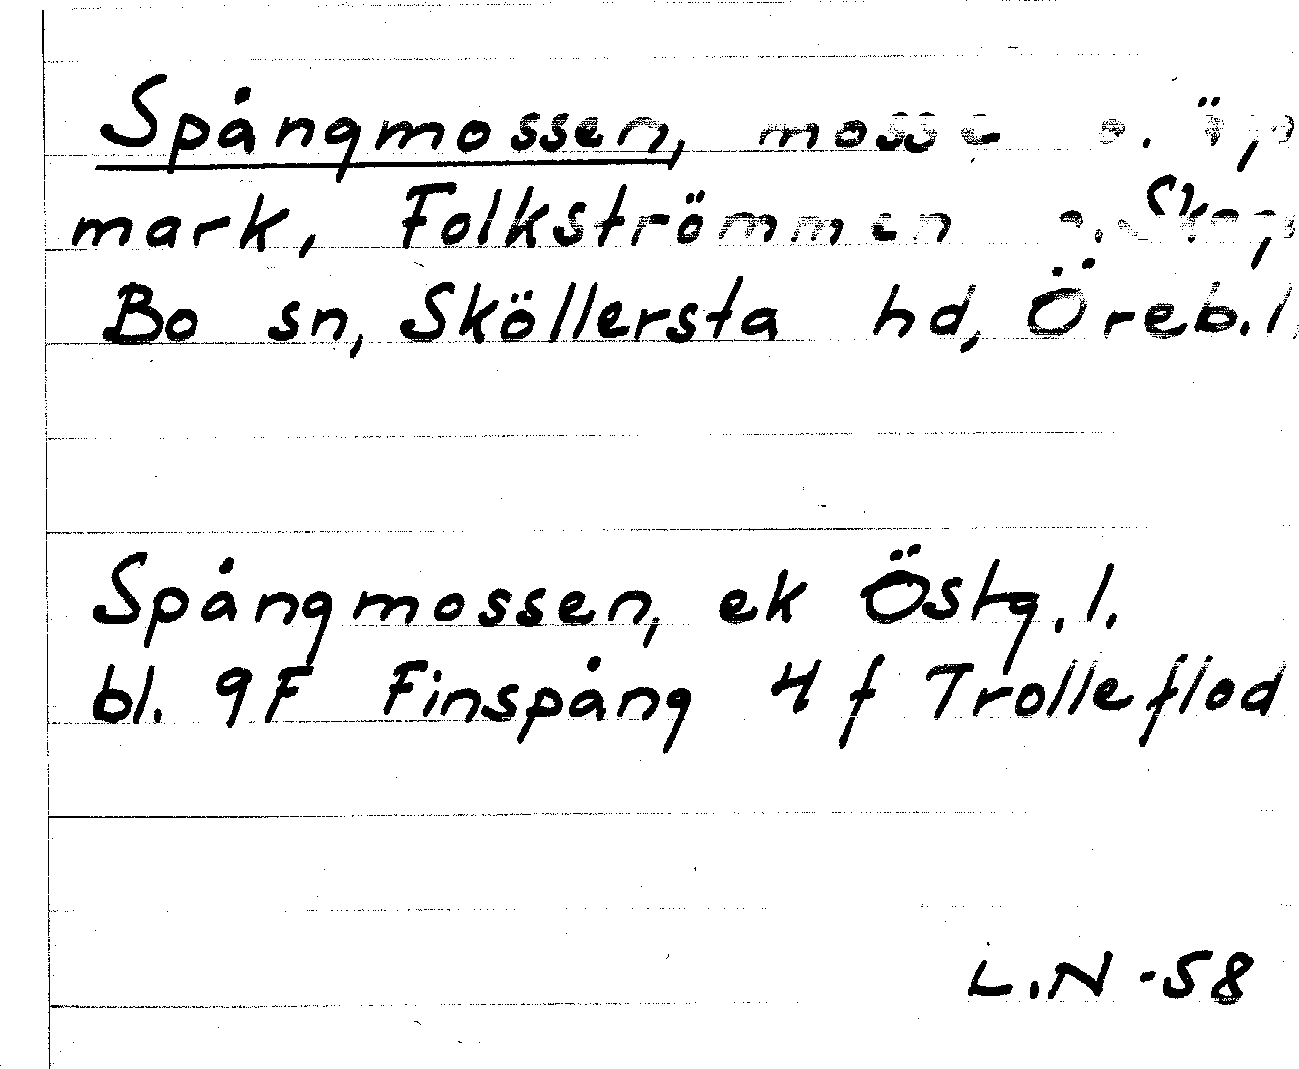 Spångmossen, mosse
mark, Folkströmmen
Bo sn, Sköllersta hd, Öreb. l.
Spångmossen, ek Östg. l.
bl. 9F Finspång 4 f Trolleflod
L.N -58